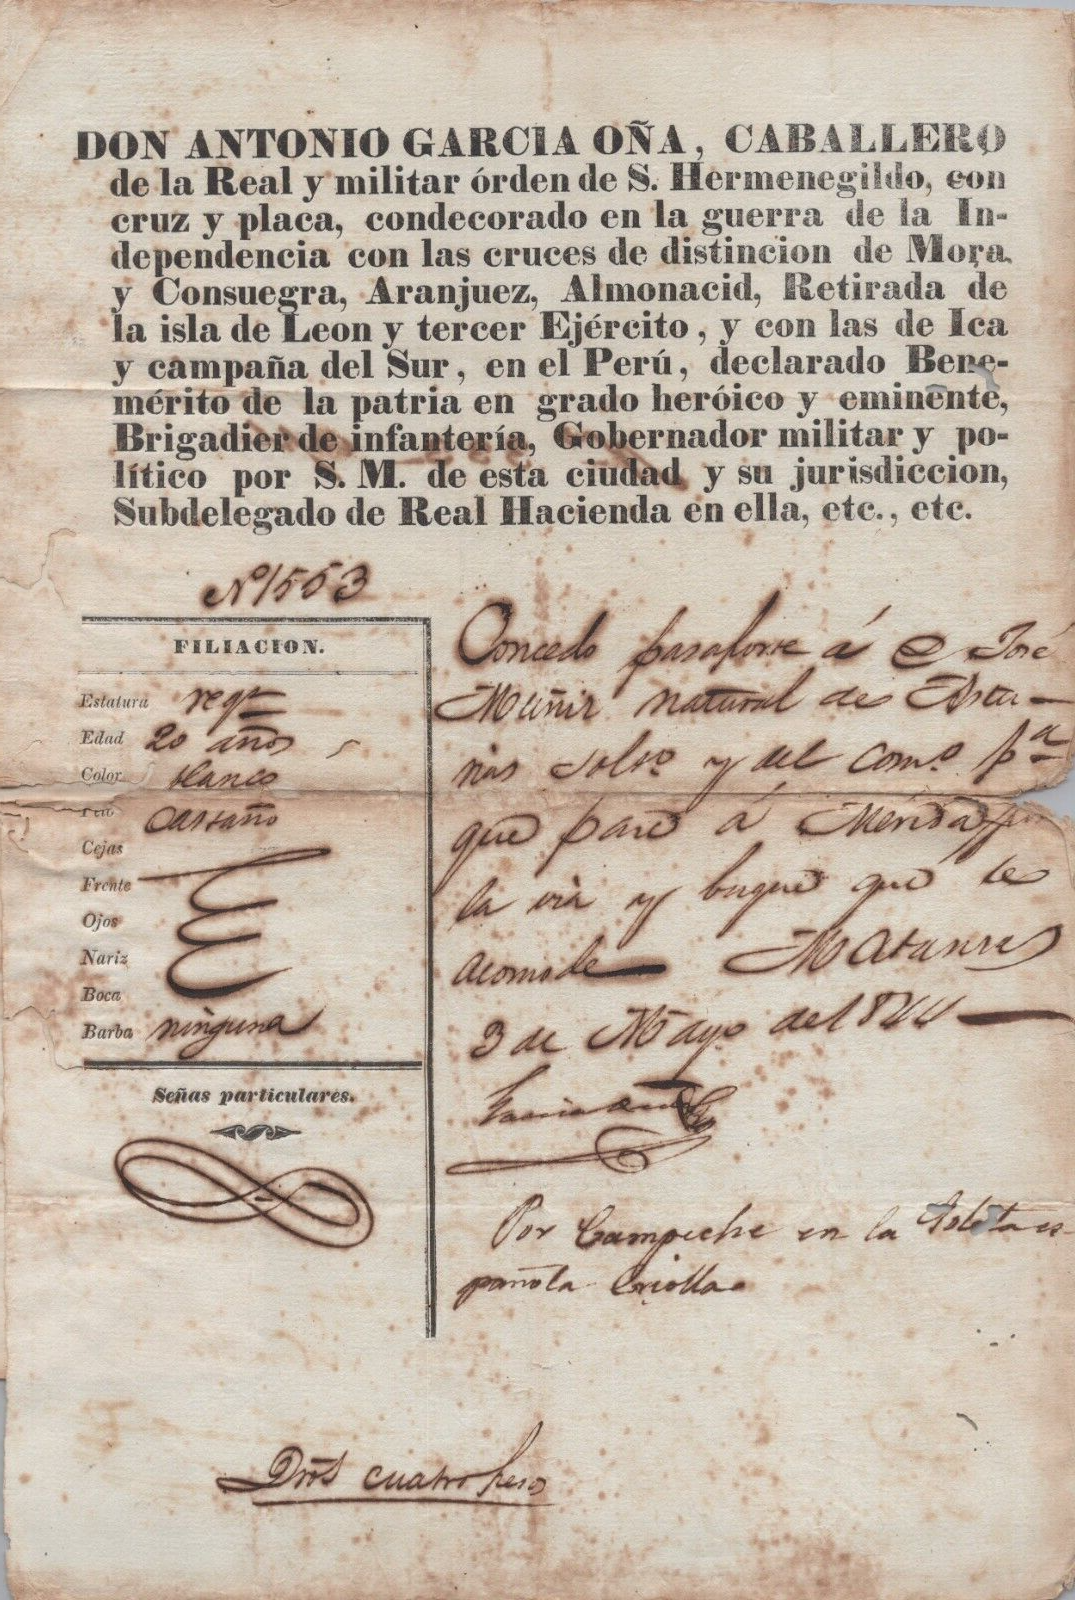 DON ANTONIO GARCIA OÑA, CABALLERO
de la Real y militar órden de S. Hermenegildo, con
cruz y placa, condecorado en la guerra de la In-
dependencia con las cruces de distincion de Mora
y Consuegra, Aranjuez, Almonacid, Retirada de
la isla de Leon y tercer Ejército, y con las de Ica
y campaña del Sur, en el Perú, declarado Bene-
mérito de la patria en grado heróico y eminente,
Brigadier de infantería, Gobernador militar y po-
lítico por S. M. de esta ciudad y su jurisdiccion,
Subdelegado de Real Hacienda en ella, etc., etc.
Nº 1553
FILIACION.
Estatura regr
Edad 20 años
Color blanco
Pelo castaño
Cejas
Frente
Ojos
Nariz
Boca
Barba ninguna
Señas particulares.
Concedo pasaporte á D José
Muñiz natural de Astu-
rias solto y del como pa
que pase á Mérida por
la via y buque que le
acomode Matanzas
3 de Mayo del 844
Garcia Oña
Por Campeche en la Goleta es-
pañola Criolla
Dros cuatro pesos